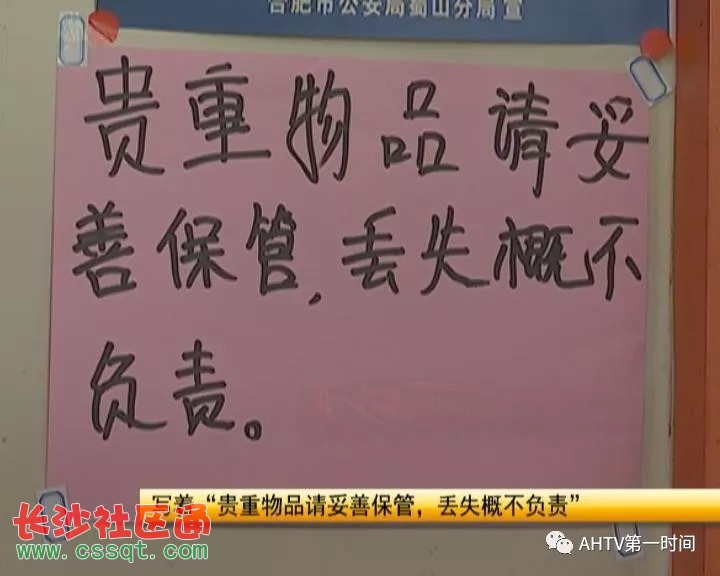 合肥市公安局蜀山分局宣
贵重物品请妥
善保管,丢失概不
负责。
写着“贵重物品请妥善保管，丢失概不负责”
长沙社区通
www.cssqt.com
AHTV第一时间